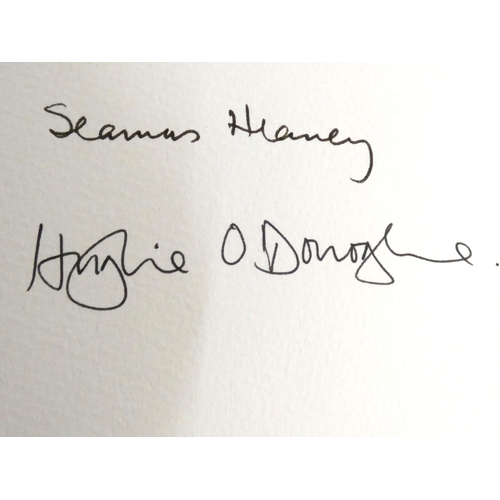 Seamus Heaney
Hughie O'Donoghue.